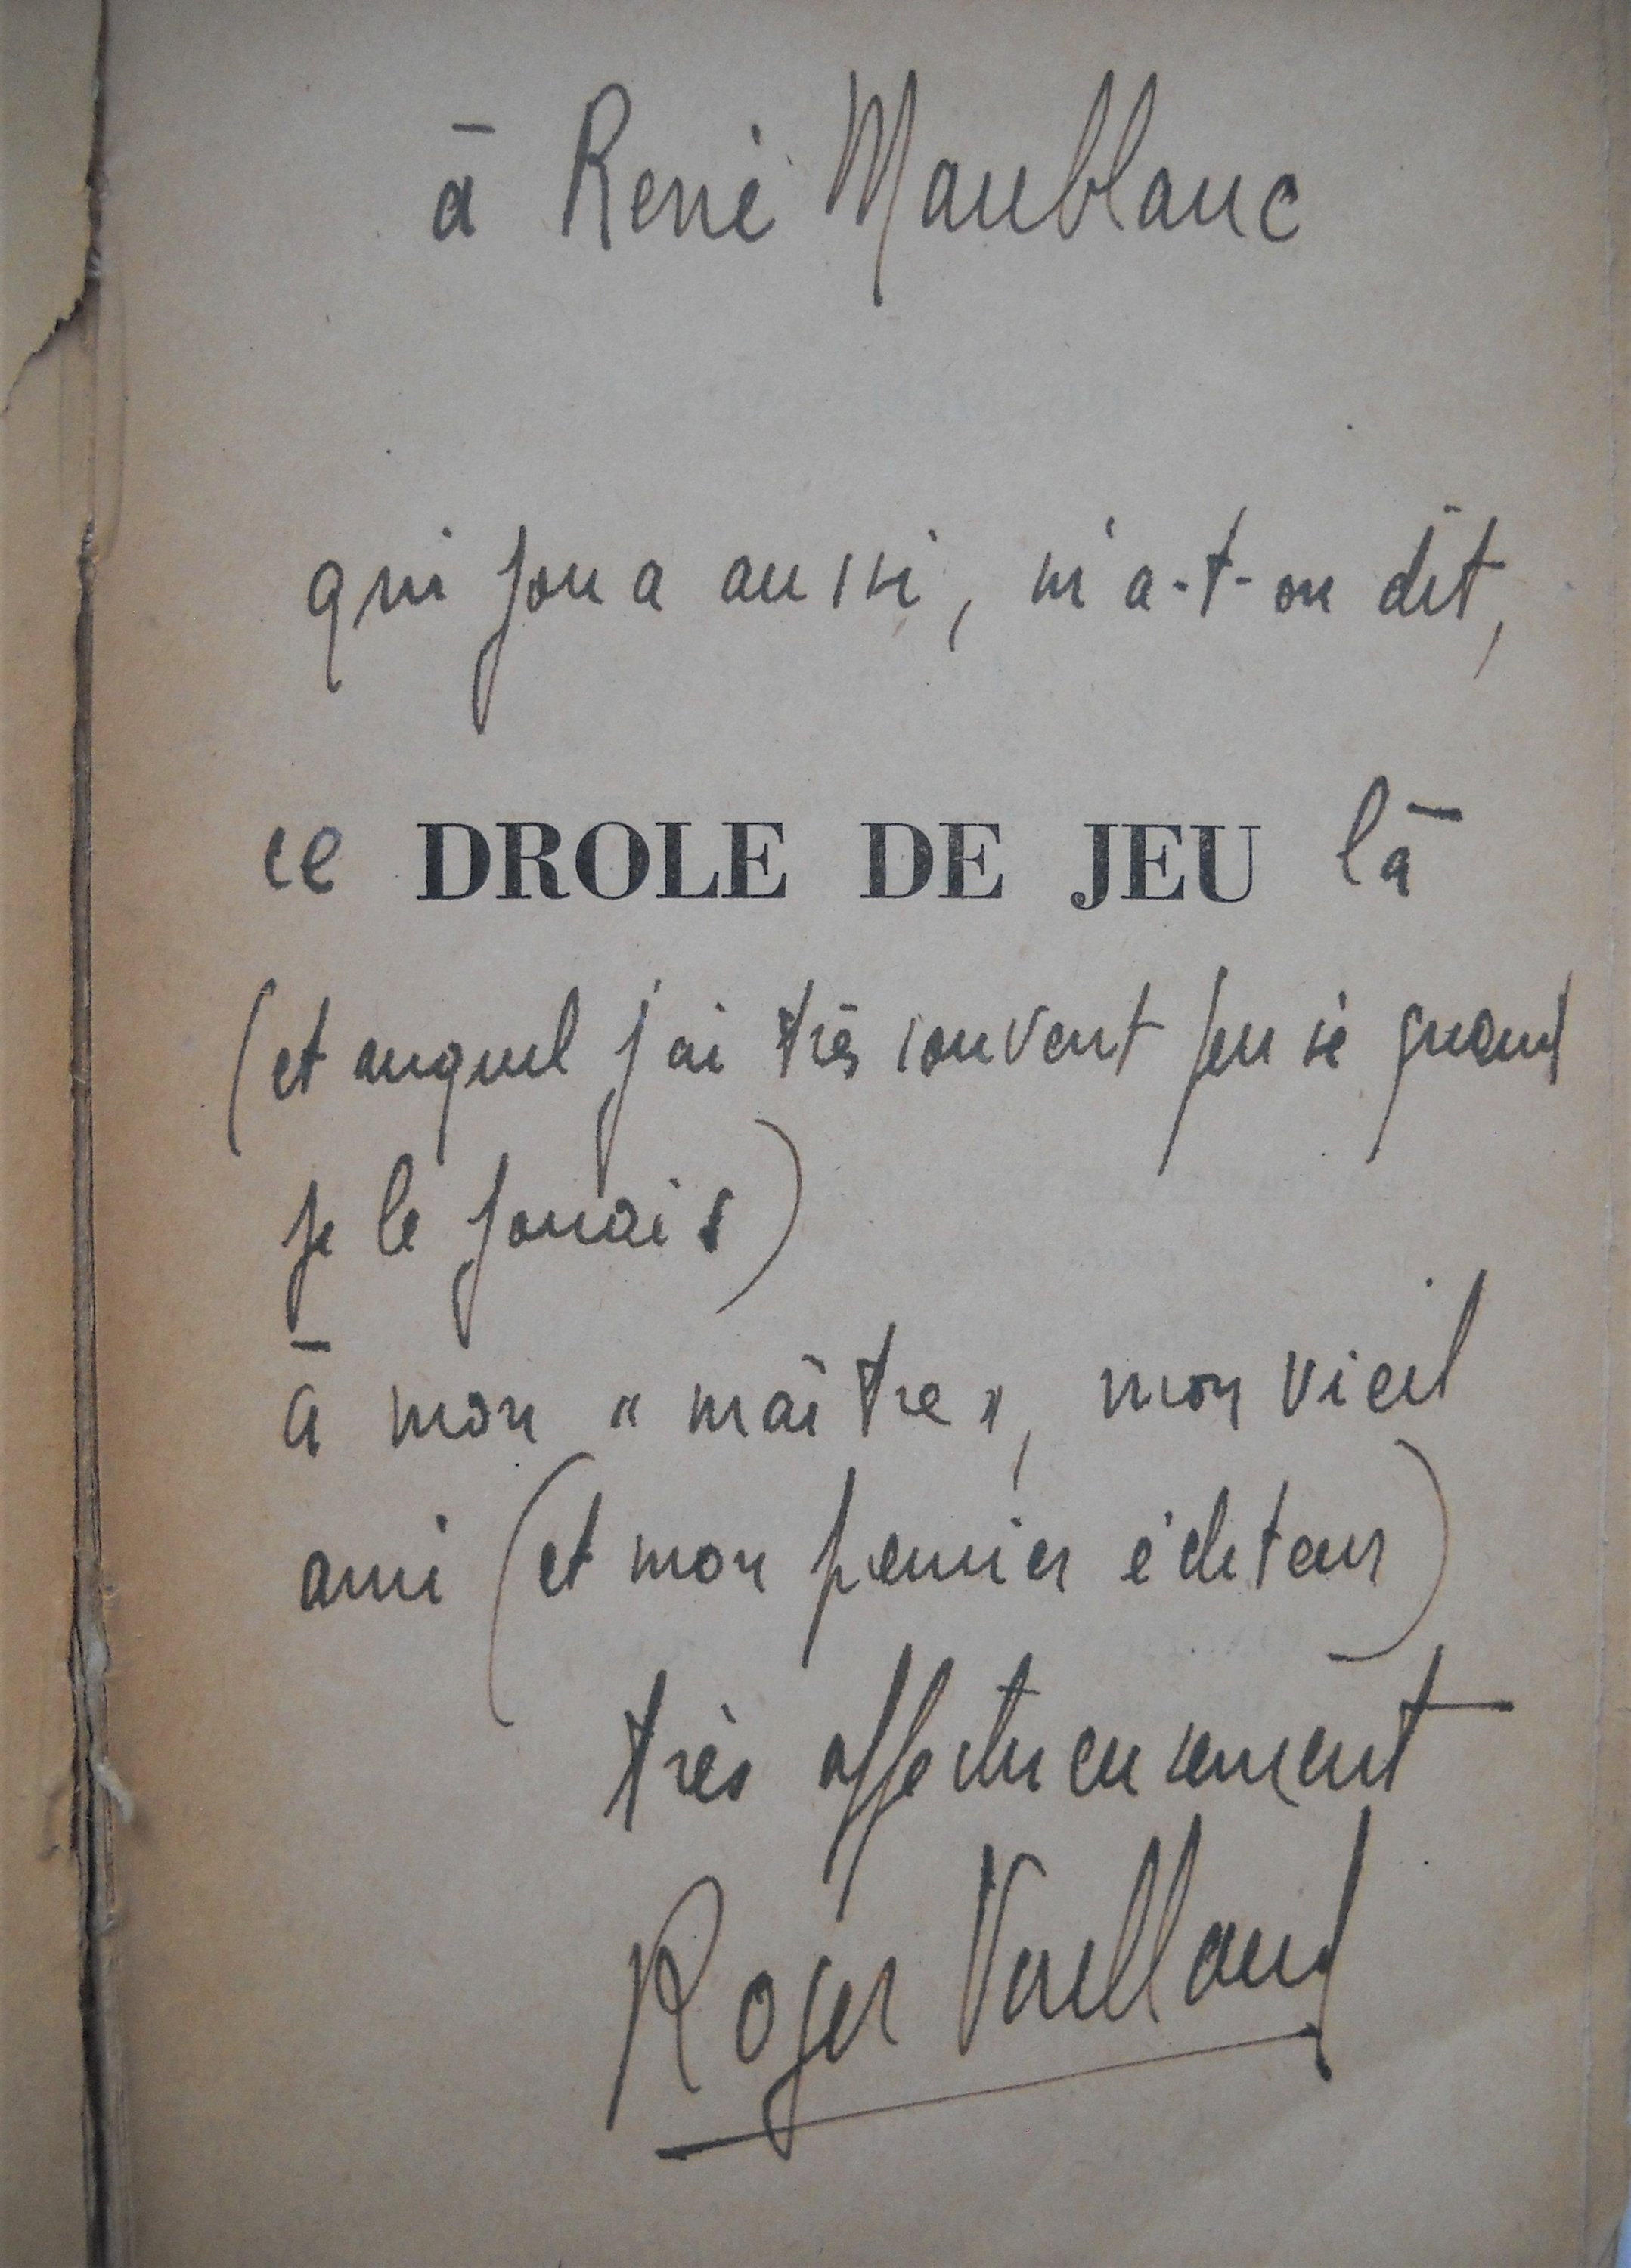 à René Maublanc
qui joua aussi, m'a-t-on dit,
ce DROLE DE JEU là
(et auquel j'ai très souvent pensé quand
je le jouais)
à mon « maître », mon vieil
ami (et mon premier éditeur)
très affectueusement
Roger Vailland